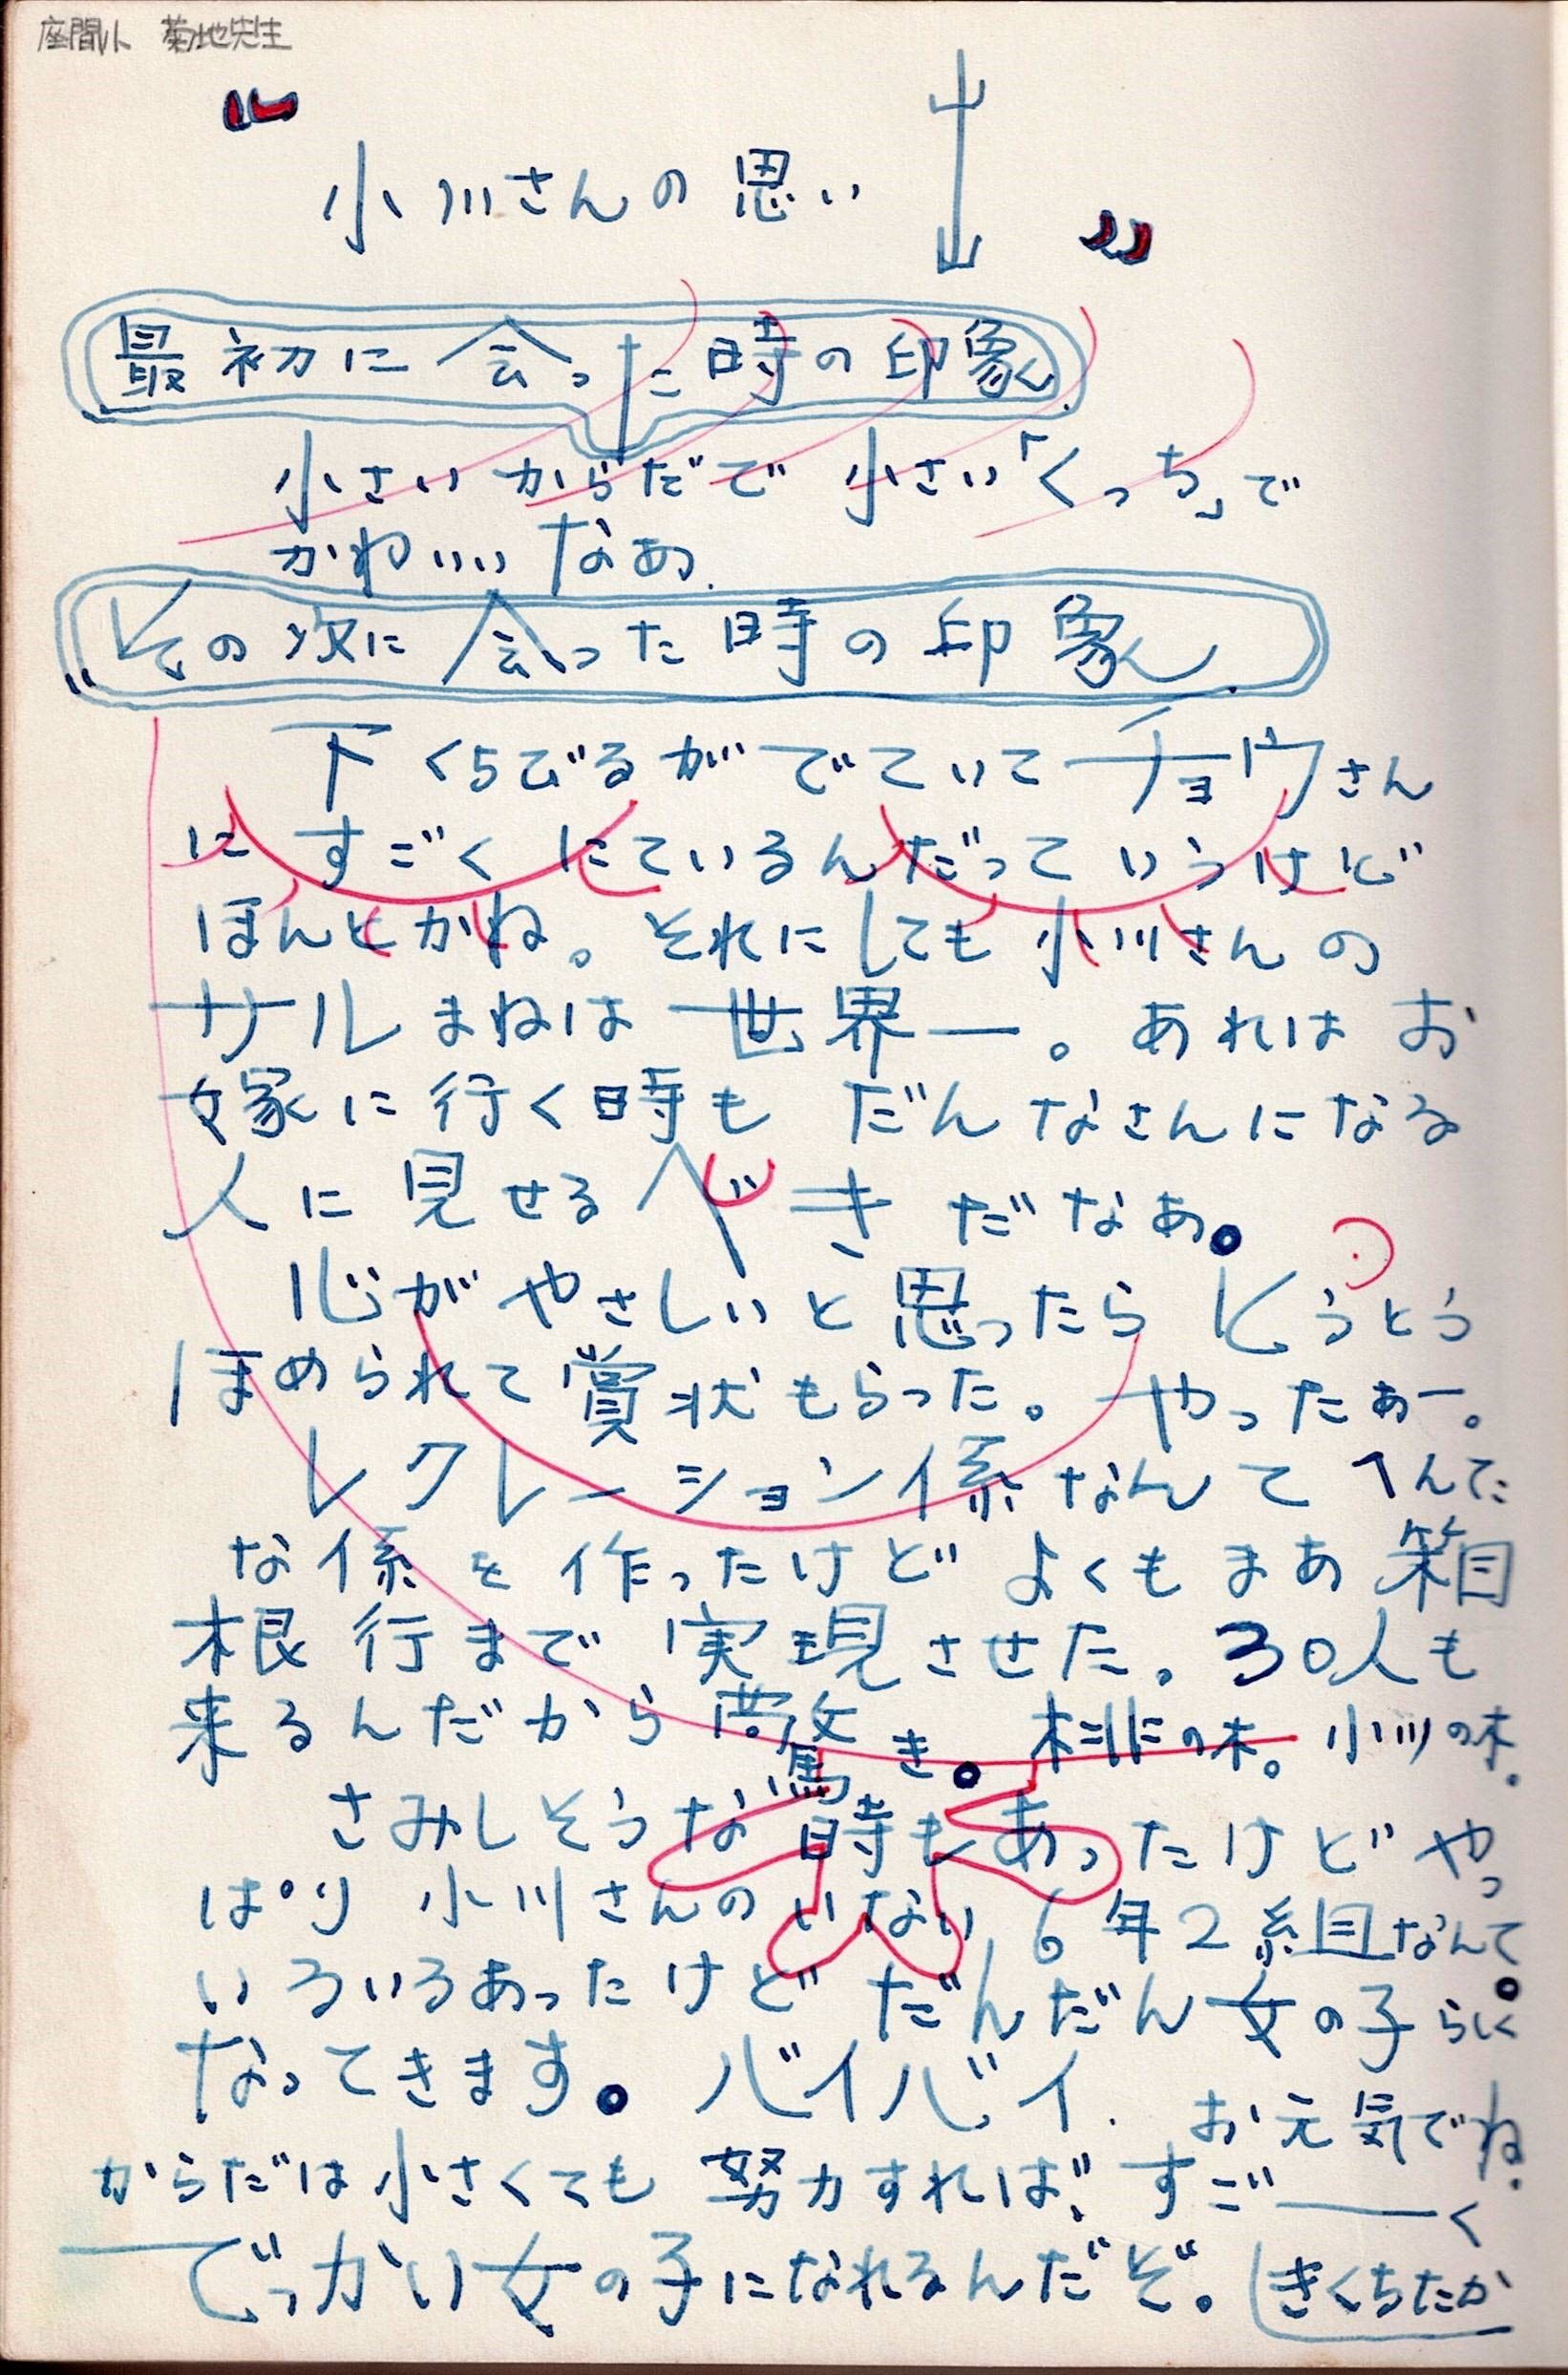 座間小 菊地先生
“小川さんの思い出”
最初に会った時の印象.
小さいからだで 小さい「くっち」で
かわいいなあ.
その次に会った時の印象.
下くちびるがでていてチョウさん
に すごく にているんだって いうけど
ほんとかね。それにしても 小川さんの
サルまねは 世界一。あれは お
嫁に行く時も だんなさんになる
人に見せるべきだなあ。
心がやさしいと思ったら とうとう
ほめられて賞状もらった。やったぁー。
レクレーション係なんて へんてこ
な係を作ったけど よくもまあ 箱
根行まで 実現させた。30人も
来るんだから 驚き。 小川の木.
さみしそうな時もあったけど やっ
ぱり 小川さんの いない 6年2組なんて。
いろいろあったけど だんだん女の子らしく
なってきます。バイバイ. お元気でね.
からだは小さくても 努力すれば、すごーく
でっかい女の子になれるんだぞ。 きくちたか